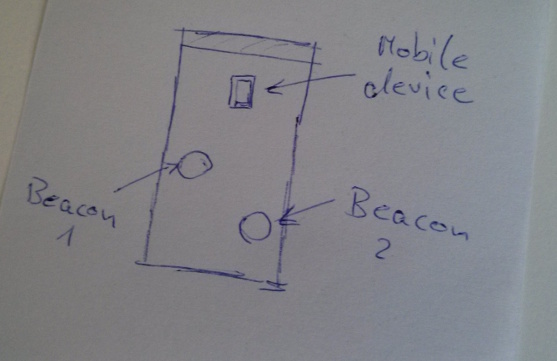 Mobile
device
Beacon
1
Beacon
2